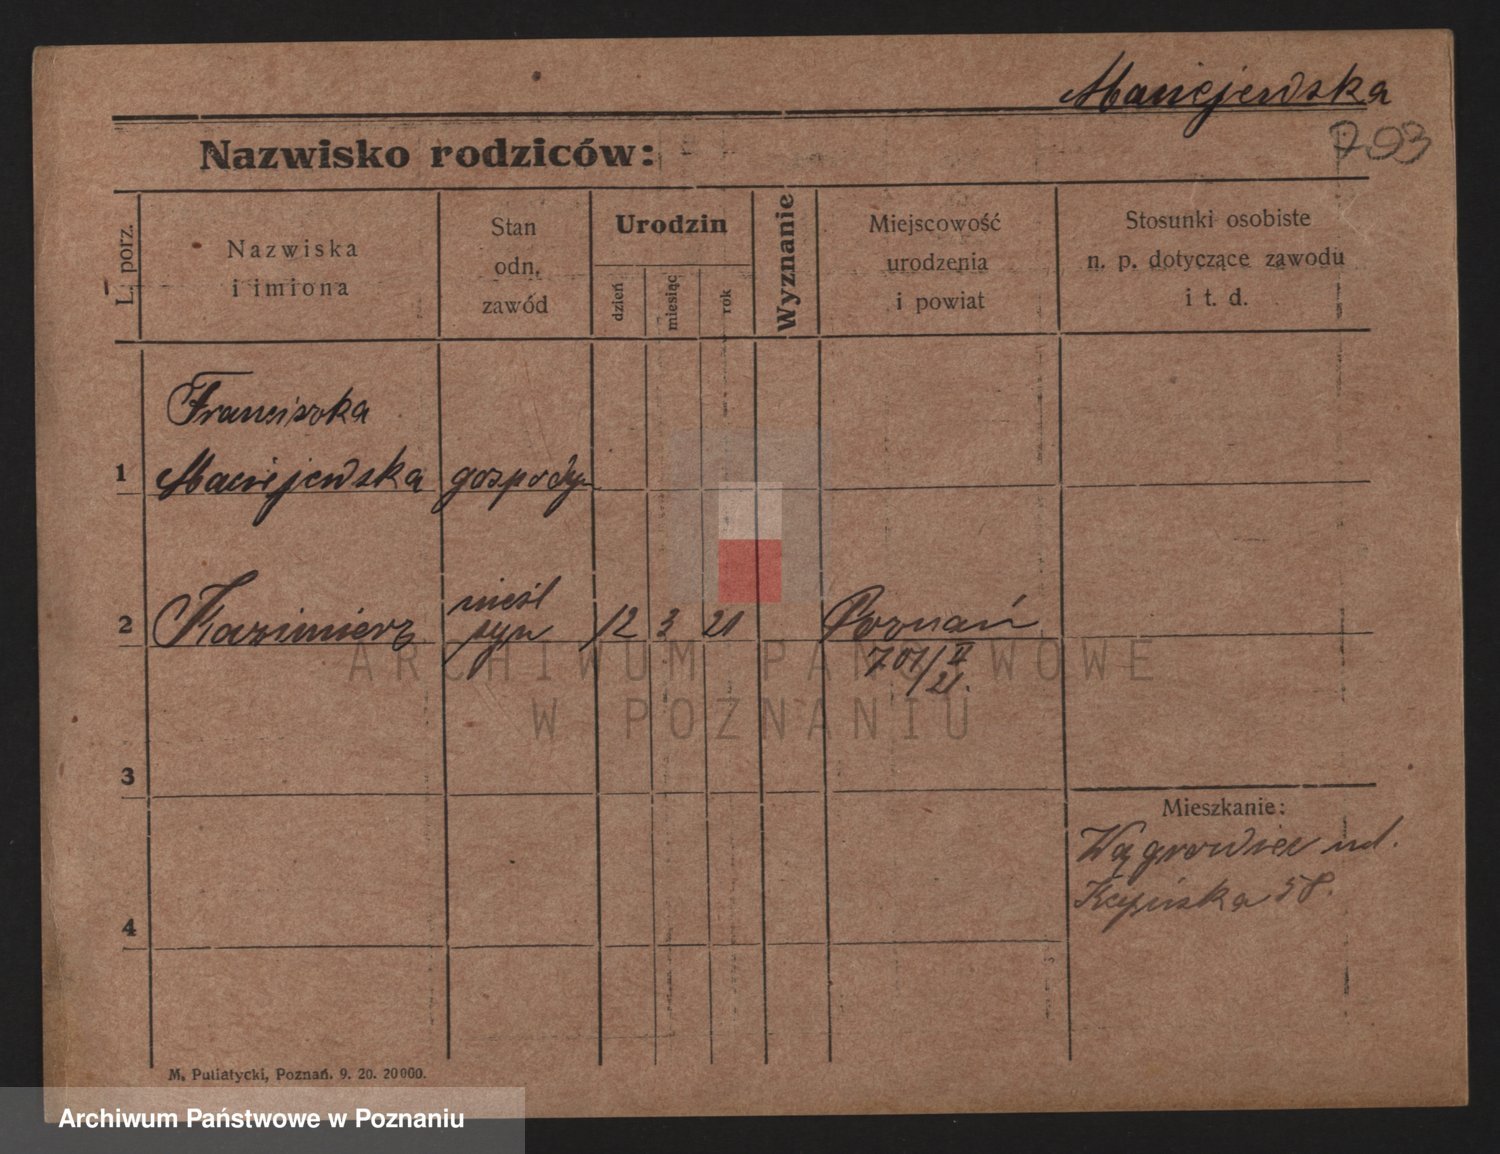 Maciejewska
793
Nazwisko rodziców:
L. porz.
Nazwiska
i imiona
Stan
odn.
zawód
Urodzin
dzień
miesiąc
rok
Wyznanie
Miejscowość
urodzenia
i powiat
Stosunki osobiste
n. p. dotyczące zawodu
i t. d.
Franciszka
1 Maciejewska gospodyn
nieśl
2 Kazimierz syn 12 3 21 Poznań
701/II
/21.
ARCHIWUM PAŃSTWOWE
W POZNANIU
3
Mieszkanie:
Wągrowiec ul.
58.
4
M. Putiatycki, Poznań. 9. 20. 20000.
Archiwum Państwowe w Poznaniu